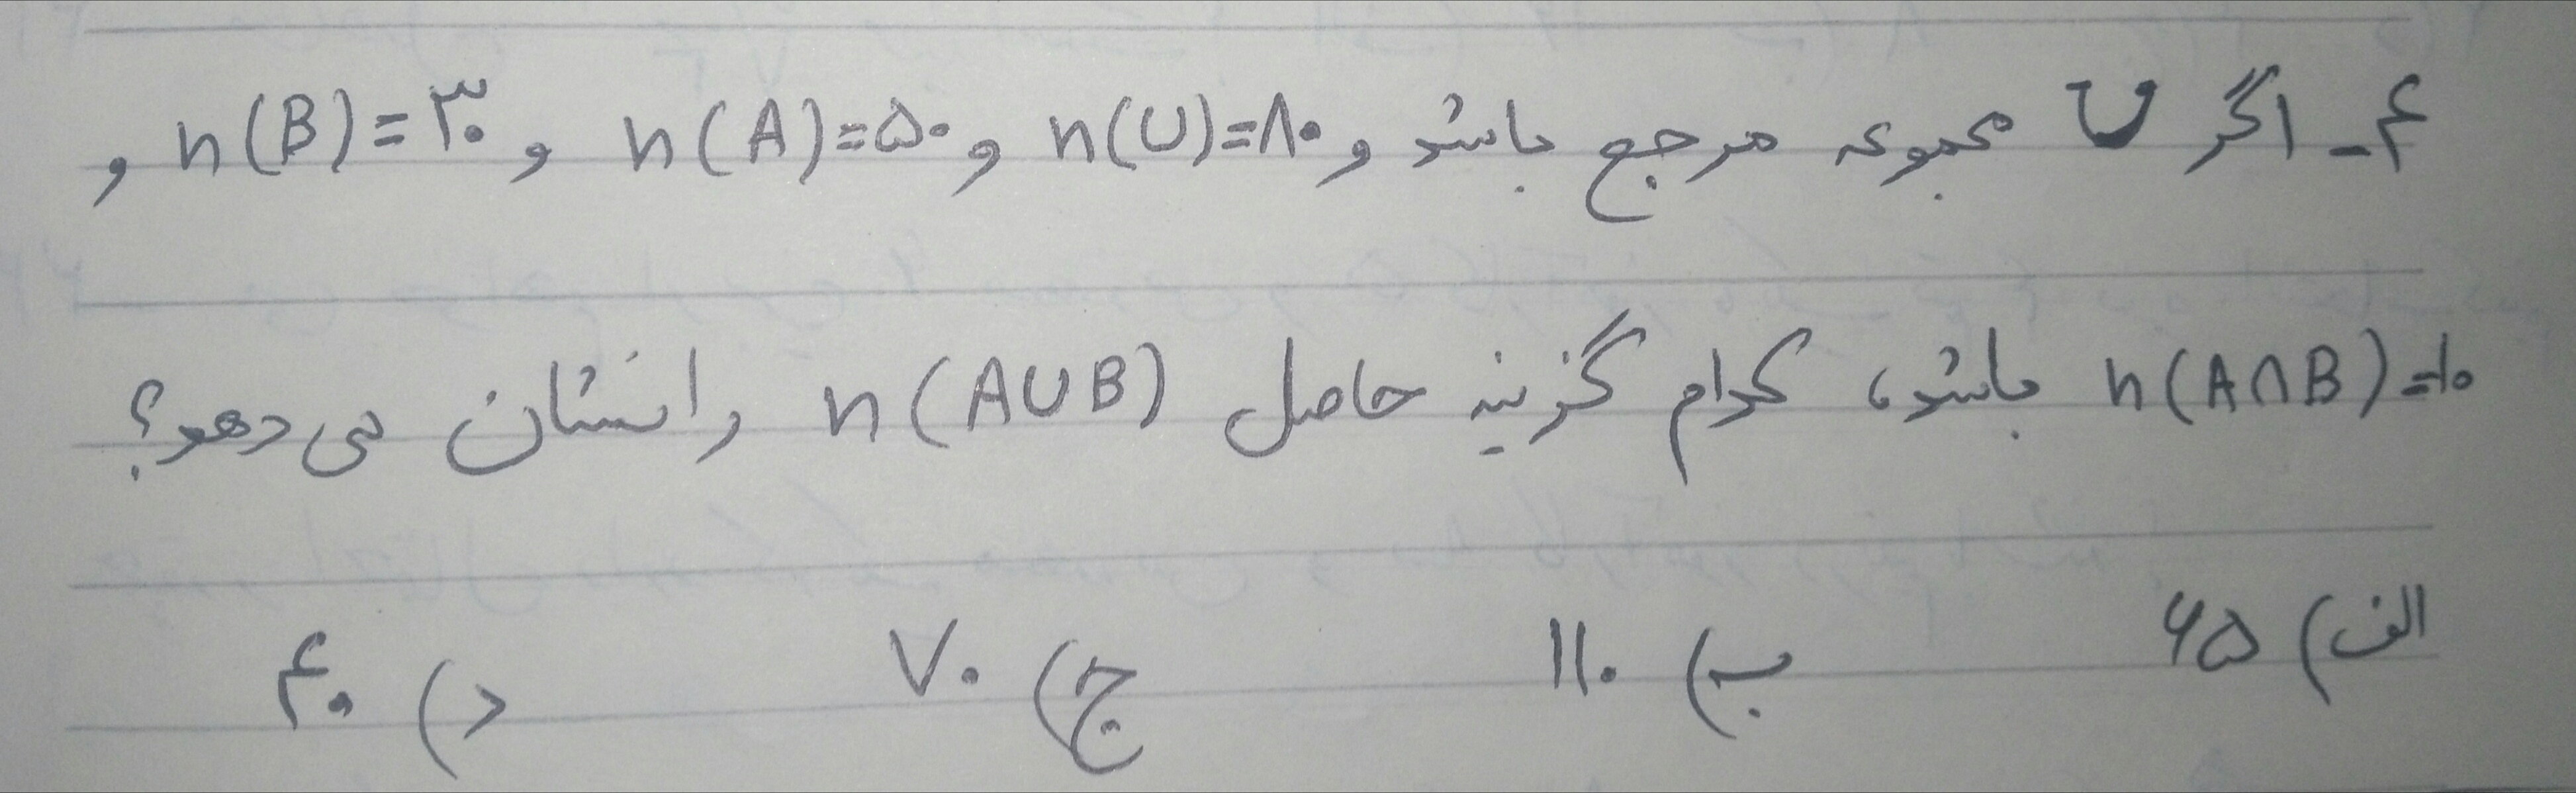 ۴- اگر U مجموعه مرجع باشد و n(U)=۸۰ و n(A)=۵۰ و n(B)=۳۰ و
n(A∩B)=۱۰ باشد، کدام گزینه حاصل n(A∪B) را نشان می دهد؟
الف) ۶۵ ب) ۱۱۰ ج) ۷۰ د) ۴۰